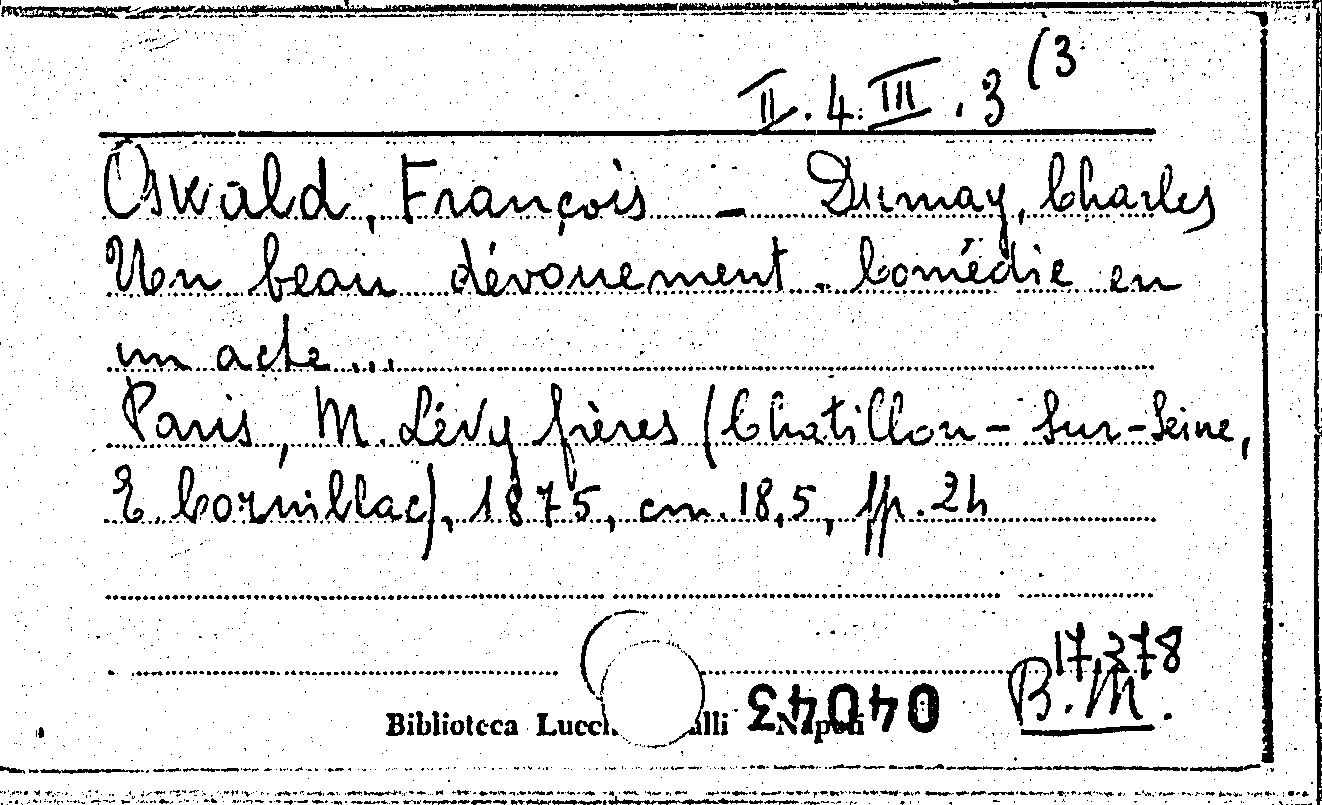 II. 4. III. 3 (3
Oswald, François - Dumay, Charles
Un beau dévouement. Comédie en
un acte...
Paris, M. Lévy frères (Chatillon-sur-Seine,
E. Cornillac), 1875, cm. 18,5, pp. 24
17.378
B.M.
04043
Biblioteca Napoli